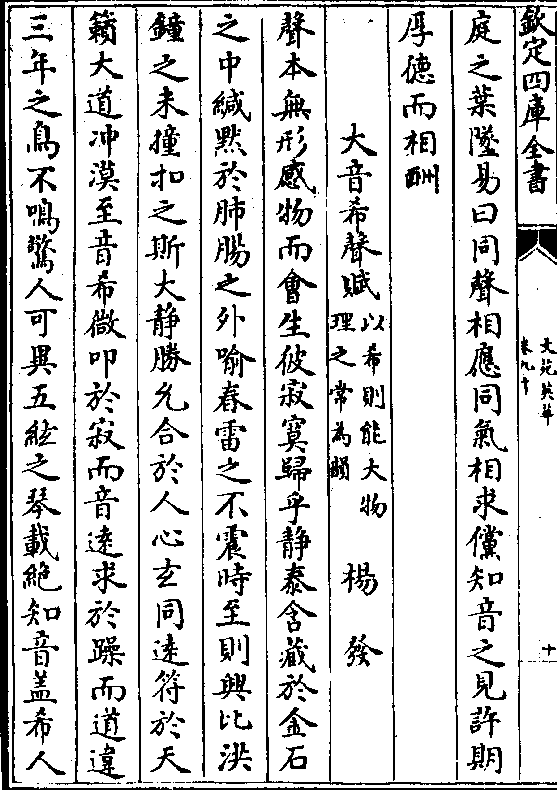 欽定四庫全書
文苑英華
卷九十
十
庭之葉墜易曰同聲相應同氣相求儻知音之見許期
厚德而相酬
大音希聲賦以希則能大物理之常為韻 楊發
聲本無形感物而會生彼寂寞歸乎静泰含藏於金石
之中緘黙於肺腸之外喻春雷之不震時至則興比洪
鐘之未撞扣之斯大静勝允合於人心玄同逺符於天
籟大道冲漠至音希㣲叩於寂而音逺求於躁而道違
三年之鳥不鳴驚人可異五絃之琴載絶知音盖希人